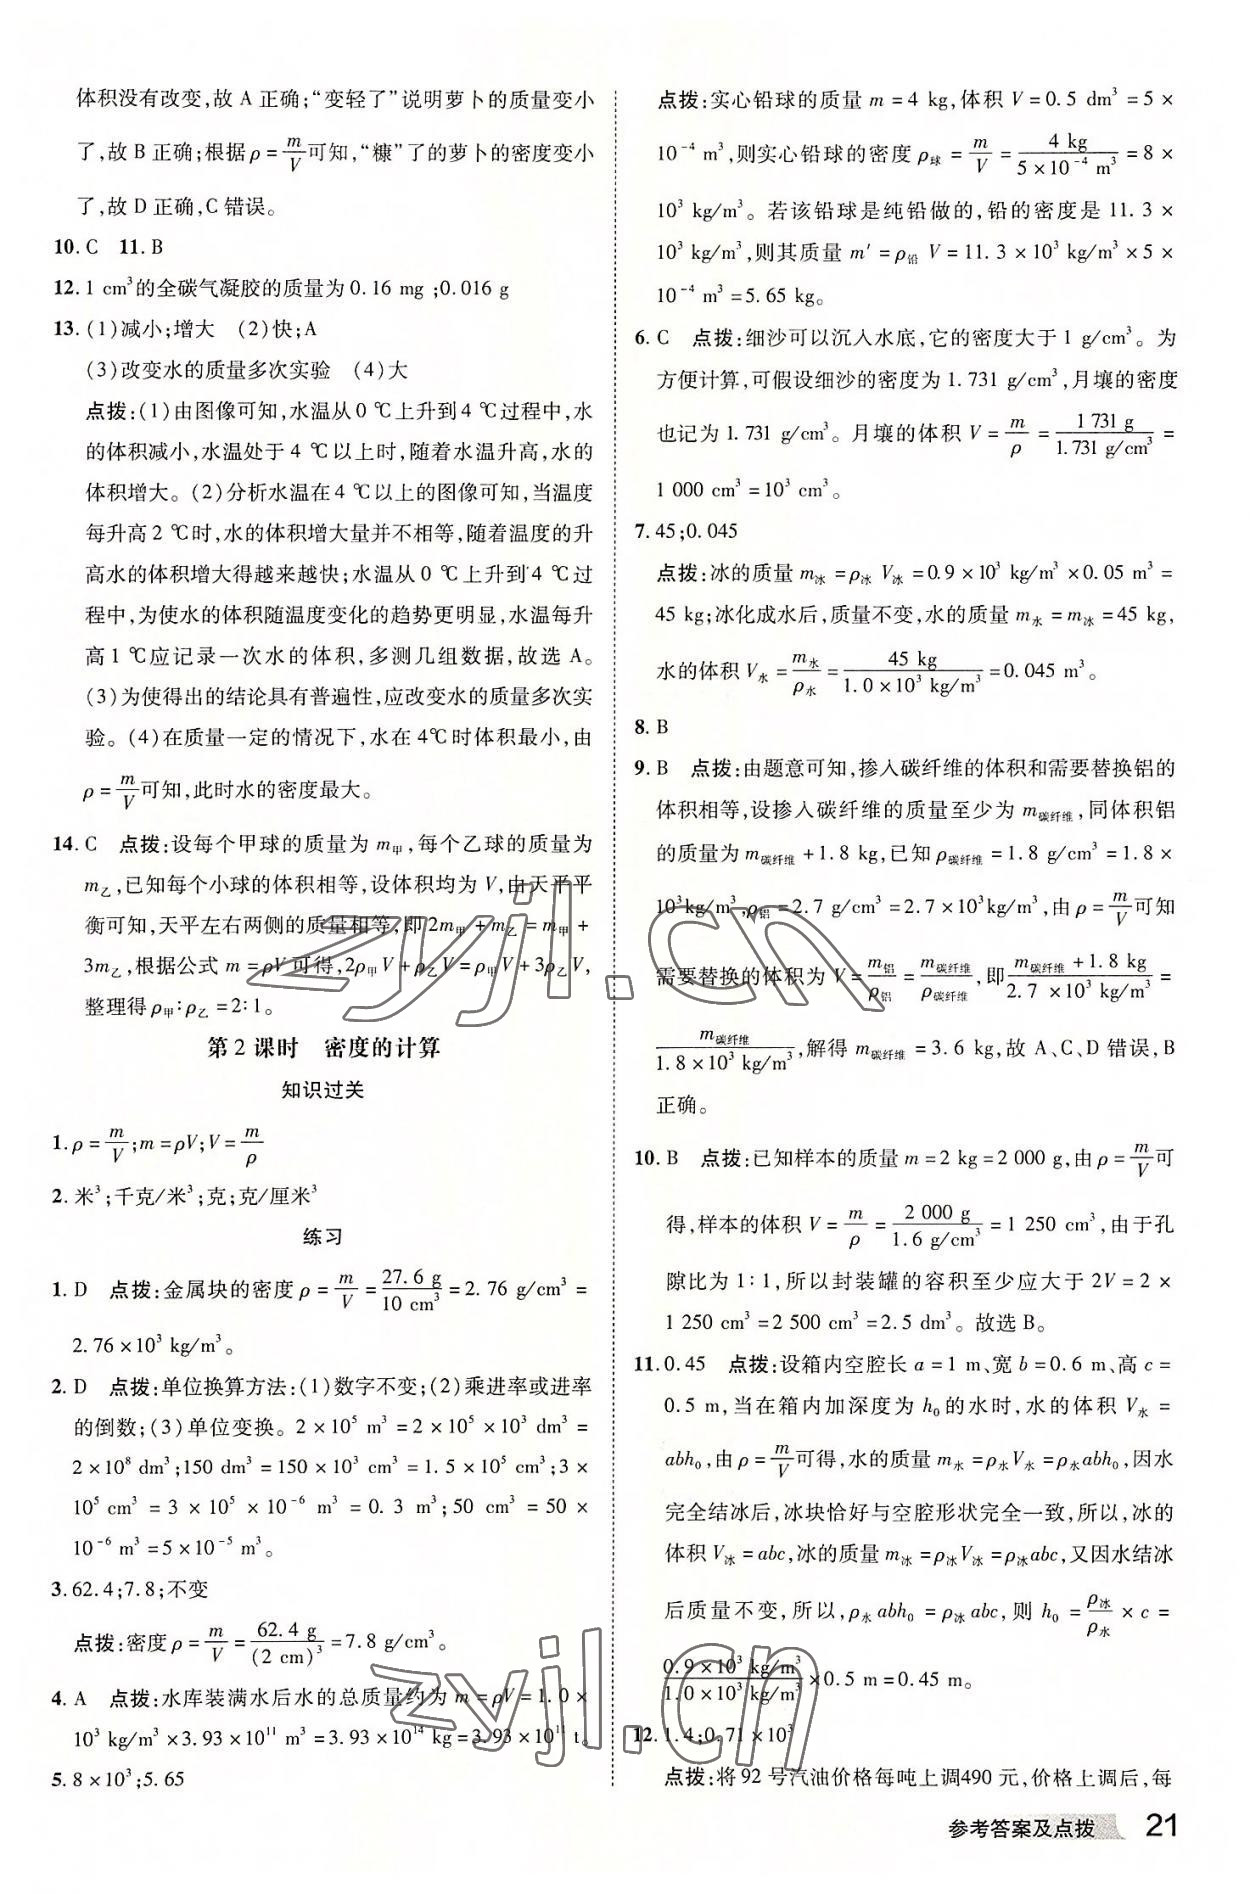 体积没有改变,故 A 正确;“变轻了”说明萝卜的质量变小
了,故 B 正确;根据 ρ = m/V 可知,“糠”了的萝卜的密度变小
了,故 D 正确,C 错误。
10. C  11. B
12. 1 cm³的全碳气凝胶的质量为 0.16 mg ;0.016 g
13. (1)减小;增大  (2)快;A
(3)改变水的质量多次实验  (4)大
点拨:(1)由图像可知,水温从 0 ℃上升到 4 ℃过程中,水
的体积减小,水温处于 4 ℃以上时,随着水温升高,水的
体积增大。(2)分析水温在 4 ℃以上的图像可知,当温度
每升高 2 ℃时,水的体积增大量并不相等,随着温度的升
高水的体积增大得越来越快;水温从 0 ℃上升到 4 ℃过
程中,为使水的体积随温度变化的趋势更明显,水温每升
高 1 ℃应记录一次水的体积,多测几组数据,故选 A。
(3)为使得出的结论具有普遍性,应改变水的质量多次实
验。(4)在质量一定的情况下,水在 4℃时体积最小,由
ρ = m/V 可知,此时水的密度最大。
14. C  点拨:设每个甲球的质量为 m甲,每个乙球的质量为
m乙,已知每个小球的体积相等,设体积均为 V,由天平平
衡可知,天平左右两侧的质量相等,即 2m甲 + m乙 = m甲 +
3m乙,根据公式 m = ρV 可得,2ρ甲V + ρ乙V = ρ甲V + 3ρ乙V,
整理得 ρ甲∶ρ乙 = 2∶1。
第 2 课时  密度的计算
知识过关
1. ρ = m/V;m = ρV;V = m/ρ
2. 米³;千克/米³;克;克/厘米³
练习
1. D  点拨:金属块的密度 ρ = m/V = 27.6 g/10 cm³ = 2.76 g/cm³ =
2.76 × 10³ kg/m³。
2. D  点拨:单位换算方法:(1)数字不变;(2)乘进率或进率
的倒数;(3)单位变换。2 × 10⁵ m³ = 2 × 10⁵ × 10³ dm³ =
2 × 10⁸ dm³;150 dm³ = 150 × 10³ cm³ = 1.5 × 10⁵ cm³;3 ×
10⁵ cm³ = 3 × 10⁵ × 10⁻⁶ m³ = 0.3 m³;50 cm³ = 50 ×
10⁻⁶ m³ = 5 × 10⁻⁵ m³。
3. 62.4;7.8;不变
点拨:密度 ρ = m/V = 62.4 g/(2 cm)³ = 7.8 g/cm³。
4. A  点拨:水库装满水后水的总质量约为 m = ρV = 1.0 ×
10³ kg/m³ × 3.93 × 10¹¹ m³ = 3.93 × 10¹⁴ kg = 3.93 × 10¹¹ t。
5. 8 × 10³;5.65
点拨:实心铅球的质量 m = 4 kg,体积 V = 0.5 dm³ = 5 ×
10⁻⁴ m³,则实心铅球的密度 ρ球 = m/V = 4 kg/5 × 10⁻⁴ m³ = 8 ×
10³ kg/m³。若该铅球是纯铅做的,铅的密度是 11.3 ×
10³ kg/m³,则其质量 m′ = ρ铅 V = 11.3 × 10³ kg/m³ × 5 ×
10⁻⁴ m³ = 5.65 kg。
6. C  点拨:细沙可以沉入水底,它的密度大于 1 g/cm³。为
方便计算,可假设细沙的密度为 1.731 g/cm³,月壤的密度
也记为 1.731 g/cm³。月壤的体积 V = m/ρ = 1 731 g/1.731 g/cm³ =
1 000 cm³ = 10³ cm³。
7. 45;0.045
点拨:冰的质量 m冰 = ρ冰 V冰 = 0.9 × 10³ kg/m³ × 0.05 m³ =
45 kg;冰化成水后,质量不变,水的质量 m水 = m冰 = 45 kg,
水的体积 V水 = m水/ρ水 = 45 kg/1.0 × 10³ kg/m³ = 0.045 m³。
8. B
9. B  点拨:由题意可知,掺入碳纤维的体积和需要替换铝的
体积相等,设掺入碳纤维的质量至少为 m碳纤维,同体积铝
的质量为 m碳纤维 + 1.8 kg,已知 ρ碳纤维 = 1.8 g/cm³ = 1.8 ×
10³kg/m³,ρ铝 = 2.7 g/cm³ = 2.7 × 10³kg/m³,由 ρ = m/V 可知
需要替换的体积为 V = m铝/ρ铝 = m碳纤维/ρ碳纤维,即 m碳纤维 + 1.8 kg/2.7 × 10³ kg/m³ =
m碳纤维/1.8 × 10³ kg/m³,解得 m碳纤维 = 3.6 kg,故 A、C、D 错误,B
正确。
10. B  点拨:已知样本的质量 m = 2 kg = 2 000 g,由 ρ = m/V 可
得,样本的体积 V = m/ρ = 2 000 g/1.6 g/cm³ = 1 250 cm³,由于孔
隙比为 1∶1,所以封装罐的容积至少应大于 2V = 2 ×
1 250 cm³ = 2 500 cm³ = 2.5 dm³。故选 B。
11. 0.45  点拨:设箱内空腔长 a = 1 m、宽 b = 0.6 m、高 c =
0.5 m,当在箱内加深度为 h₀ 的水时,水的体积 V水 =
abh₀,由 ρ = m/V 可得,水的质量 m水 = ρ水V水 = ρ水abh₀,因水
完全结冰后,冰块恰好与空腔形状完全一致,所以,冰的
体积 V冰 = abc,冰的质量 m冰 = ρ冰V冰 = ρ冰abc,又因水结冰
后质量不变,所以,ρ水 abh₀ = ρ冰 abc,则 h₀ = ρ冰/ρ水 × c =
0.9 × 10³ kg/m³/1.0 × 10³ kg/m³ × 0.5 m = 0.45 m。
12. 1.4;0.71 × 10³
点拨:将 92 号汽油价格每吨上调490 元,价格上调后,每
参考答案及点拨 21
zyjl.cn
zyjl.cn